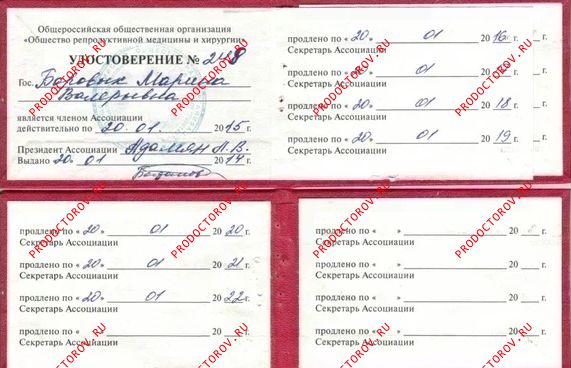 Общероссийская общественная организация
«Общество репродуктивной медицины и хирургии»
УДОСТОВЕРЕНИЕ № 248
Гос. Боровых Марина
Валерьевна
является членом Ассоциации
действительно по 20.01. 2015 г.
Президент Ассоциации Адамян Л.В.
Выдано 20 01 2014 г.
продлено по «20» 01 2016 г.
Секретарь Ассоциации
продлено по «20» 01 20 г.
Секретарь Ассоциации
продлено по «20» 01 2018 г.
Секретарь Ассоциации
продлено по «20» 01 2019 г.
Секретарь Ассоциации
продлено по «20» 01 2020 г.
Секретарь Ассоциации
продлено по «20» 01 2021 г.
Секретарь Ассоциации
продлено по «20» 01 2022 г.
Секретарь Ассоциации
продлено по « » 20 г.
Секретарь Ассоциации
продлено по « » 20 г.
Секретарь Ассоциации
продлено по « » 20 г.
Секретарь Ассоциации
продлено по « » 20 г.
Секретарь Ассоциации
продлено по « » 20 г.
Секретарь Ассоциации
PRODOCTOROV.RU
PRODOCTOROV.RU
PRODOCTOROV.RU
PRODOCTOROV.RU
PRODOCTOROV.RU
PRODOCTOROV.RU
PRODOCTOROV.RU
PRODOCTOROV.RU